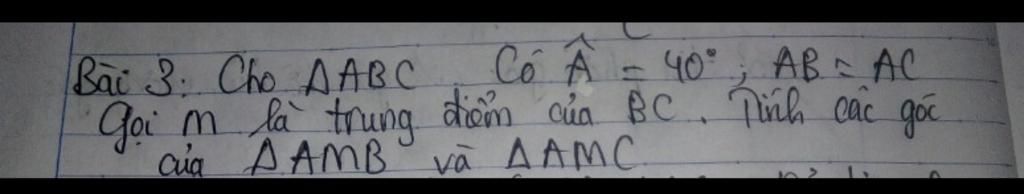 Bài 3: Cho ΔABC Có Â = 40°; AB = AC
Gọi m là trung điểm của BC. Tính các góc
của ΔAMB và ΔAMC